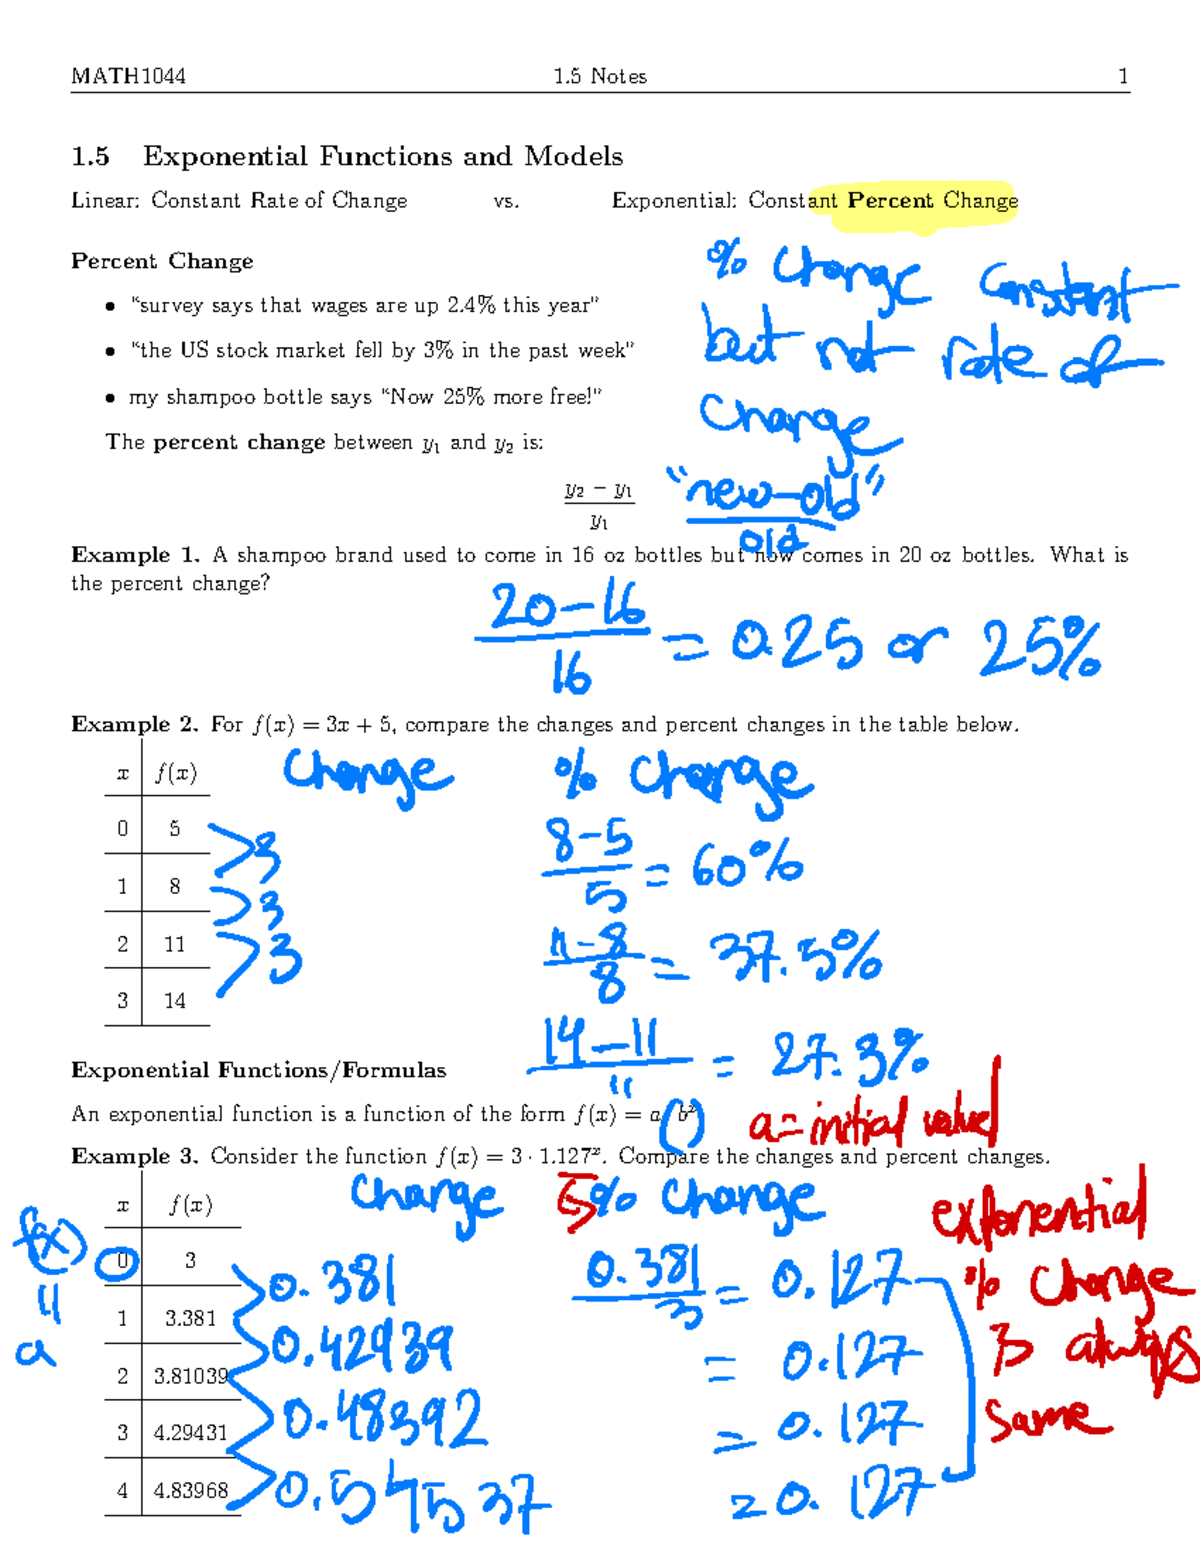 MATH1044 1.5 Notes 1
1.5 Exponential Functions and Models
Linear: Constant Rate of Change vs. Exponential: Constant Percent Change
Percent Change
% Change Constant
• "survey says that wages are up 2.4% this year"
but not rate of
• "the US stock market fell by 3% in the past week"
Change
• my shampoo bottle says "Now 25% more free!"
The percent change between y₁ and y₂ is:
y₂ − y₁ "new-old"
y₁ old
Example 1. A shampoo brand used to come in 16 oz bottles but now comes in 20 oz bottles. What is
the percent change?
20-16
16
= 0.25 or 25%
Example 2. For f(x) = 3x + 5, compare the changes and percent changes in the table below.
x f(x) Change % Change
0 5
3
8-5
5
= 60%
1 8
3
11-8
8
= 37.5%
2 11
3
3 14
14-11
11
= 27.3%
Exponential Functions/Formulas
An exponential function is a function of the form f(x) = a(bˣ) a = initial value
Example 3. Consider the function f(x) = 3 · 1.127ˣ. Compare the changes and percent changes.
x f(x) Change % Change
exponential
% change
is always
same
f(x)
=
a
0 3
0.381
0.381
3
= 0.127
1 3.381
0.42939 = 0.127
2 3.81039
0.48392 = 0.127
3 4.29431
0.545 37 = 0.127
4 4.83968